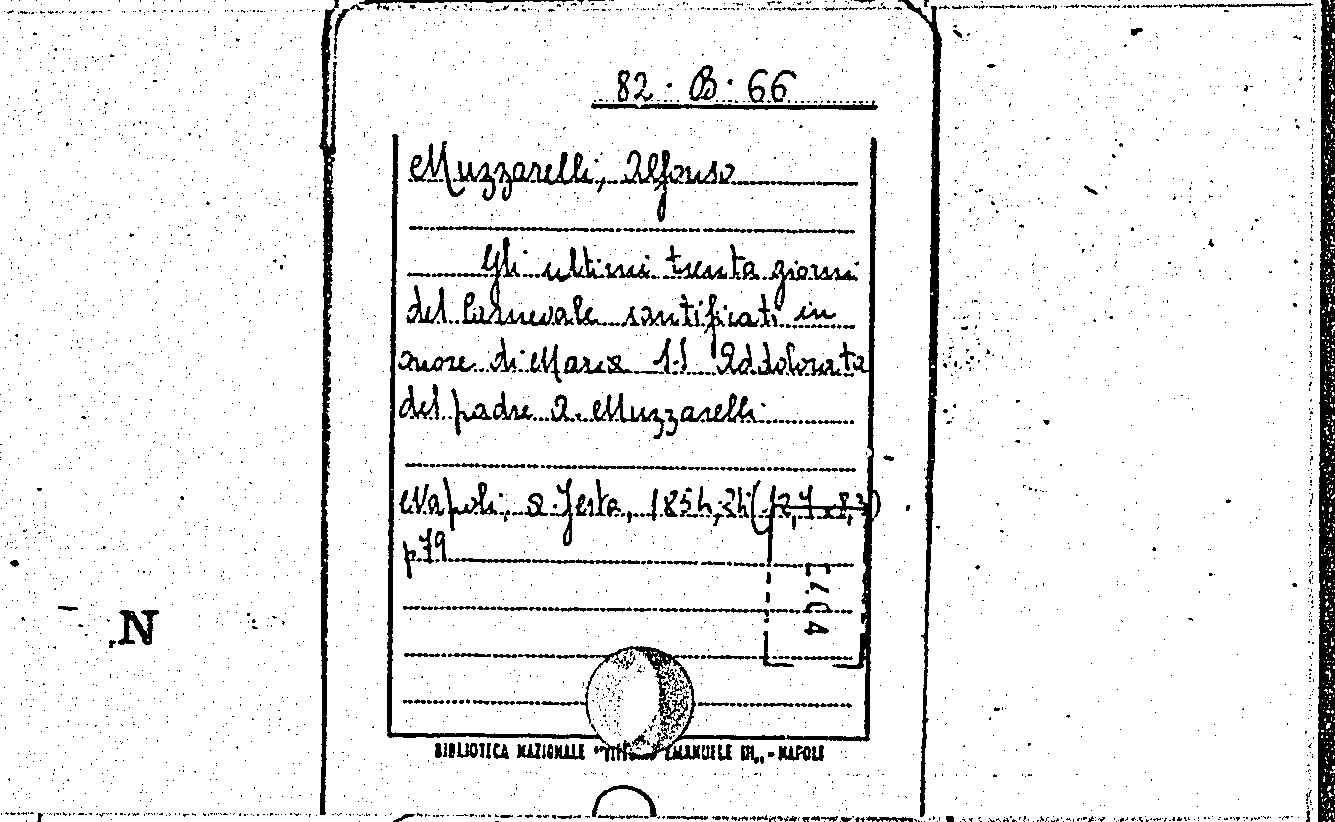 82 · B · 66
Muzzarelli, Alfonso
Gli ultimi trenta giorni
del Carnevale santificati in
onore di Maria SS Addolorata
del padre A. Muzzarelli
Napoli, G. Festa, 1854, 24 (12,7 x 8,3)
p. 79
N
BIBLIOTECA NAZIONALE "VITTORIO EMANUELE III" - NAPOLI